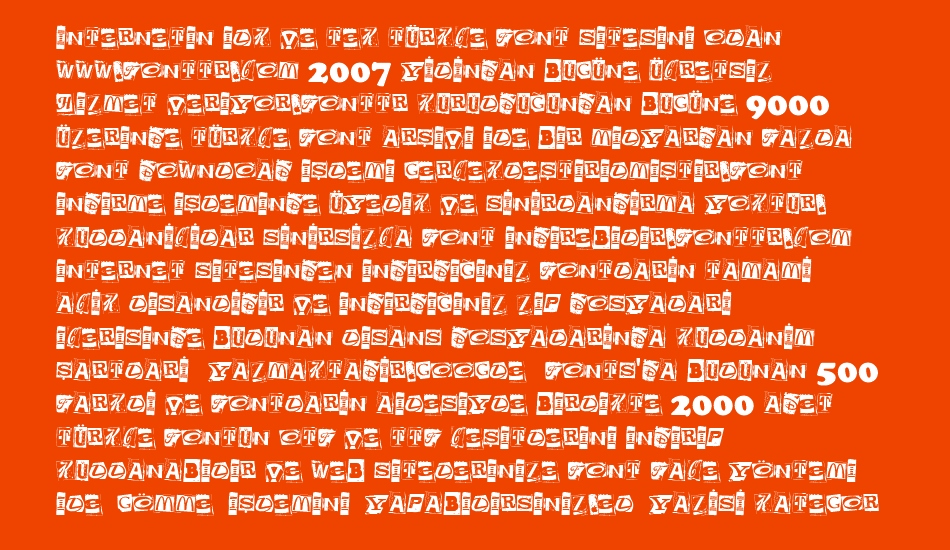 İNTERNETİN İLK VE TEK TÜRKÇE FONT SİTESİNİ OLAN
WWW.FONTTR.COM 2007 YILINDAN BUGÜNE ÜCRETSİZ
HİZMET VERİYOR.FONTTR KURULDUĞUNDAN BUGÜNE 9000
ÜZERİNDE TÜRKÇE FONT ARŞİVİ İLE BİR MİLYARDAN FAZLA
FONT DOWNLOAD İŞLEMİ GERÇEKLEŞTİRİLMİŞTİR.FONT
İNDİRME İŞLEMİNDE ÜYELİK VE SINIRLANDIRMA YOKTUR.
KULLANICILAR SINIRSIZCA FONT İNDİREBİLİR.FONTTR.COM
İNTERNET SİTESİNDEN İNDİRDİĞİNİZ FONTLARIN TAMAMI
AÇIK LİSANLIDIR VE İNDİRDİĞİNİZ ZİP DOSYALARI
İÇERİSİNDE BULUNAN LİSANS DOSYALARINDA KULLANIM
ŞARTLARI YAZMAKTADIR.GOOGLE FONTS'DA BULUNAN 500
FARKLI VE FONTLARIN AİLESİYLE BİRLİKTE 2000 ADET
TÜRKÇE FONTUN OTF VE TTF ÇEŞİTLERİNİ İNDİRİP
KULLANABİLİR VE WEB SİTELERİNİZE FONT FACE YÖNTEMİ
İLE GÖMME İŞLEMİNİ YAPABİLİRSİNİZ.EL YAZISI KATEGOR